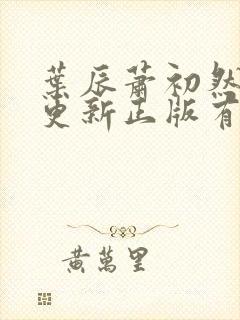 葉辰蕭初然
更新正版有
黃萬里